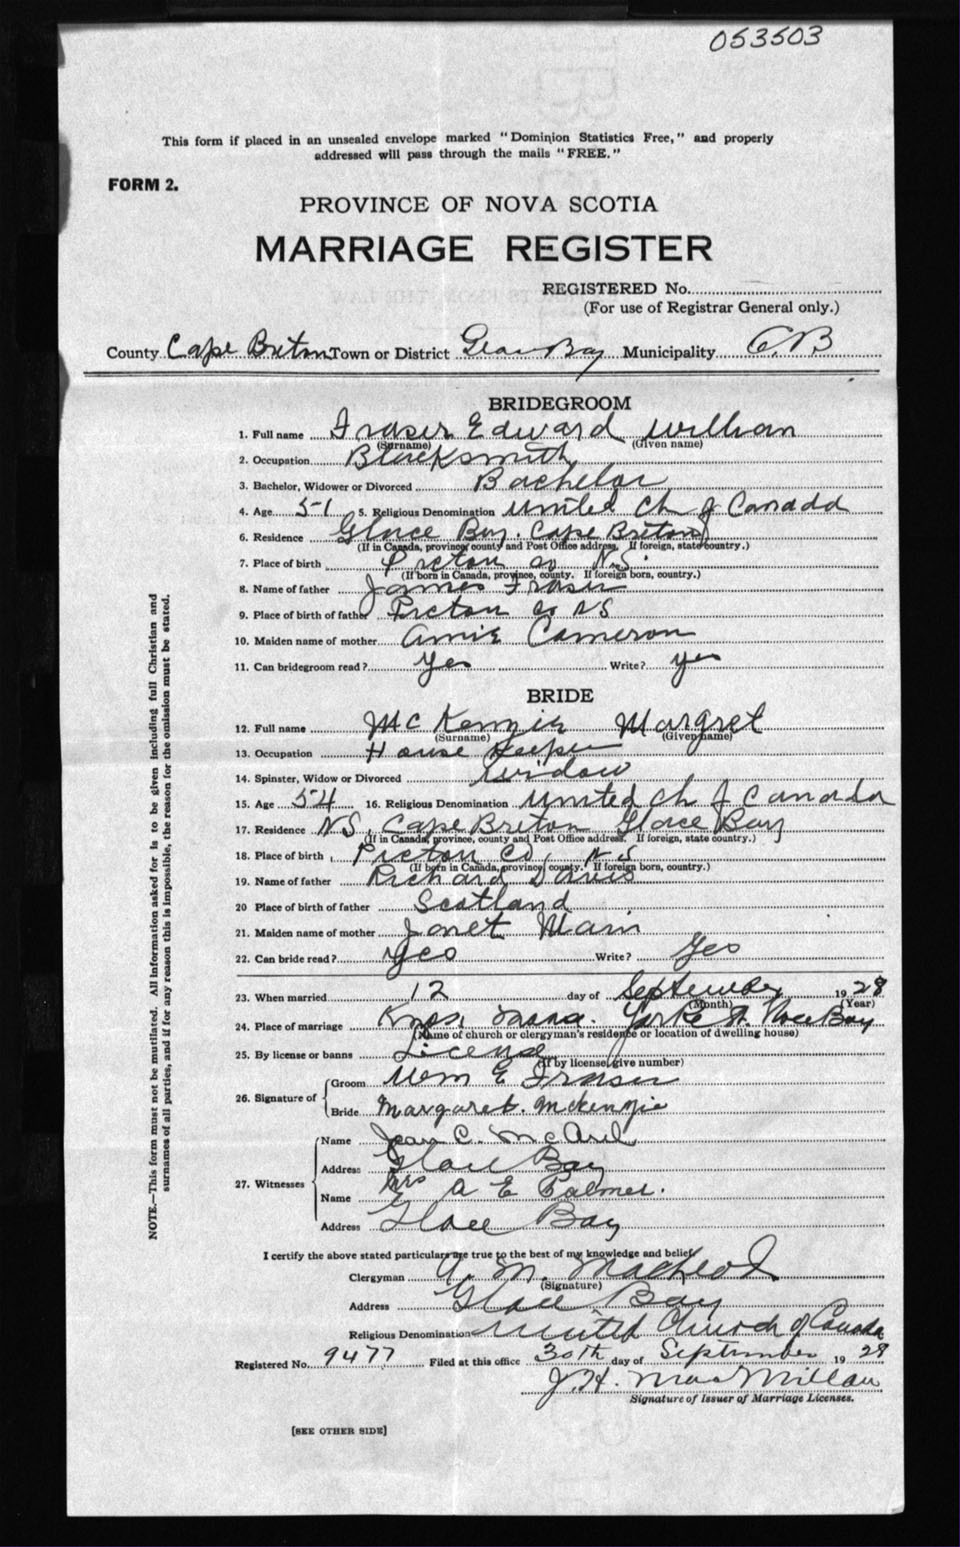 053503
This form if placed in an unsealed envelope marked "Dominion Statistics Free," and properly
addressed will pass through the mails "FREE."
FORM 2.
PROVINCE OF NOVA SCOTIA
MARRIAGE REGISTER
REGISTERED No.
(For use of Registrar General only.)
County Cape Breton Town or District Glace Bay Municipality C.B.
BRIDEGROOM
1. Full name Fraser Edward William
(Surname) (Given name)
2. Occupation Blacksmith
3. Bachelor, Widower or Divorced Bachelor
4. Age 51 5. Religious Denomination United Ch of Canada
6. Residence Glace Bay Cape Breton
(If in Canada, province, county and Post Office address. If foreign, state country.)
7. Place of birth Pictou Co N.S.
(If born in Canada, province, county. If foreign born, country.)
8. Name of father James Fraser
9. Place of birth of father Pictou Co NS
10. Maiden name of mother Annie Cameron
11. Can bridegroom read? Yes Write? Yes
BRIDE
12. Full name McKenzie Margret
(Surname) (Given name)
13. Occupation House Keeper
14. Spinster, Widow or Divorced Widow
15. Age 54 16. Religious Denomination United Ch of Canada
17. Residence NS, Cape Breton Glace Bay
(If in Canada, province, county and Post Office address. If foreign, state country.)
18. Place of birth Pictou Co, NS
(If born in Canada, province, county. If foreign born, country.)
19. Name of father Richard Davis
20 Place of birth of father Scotland
21. Maiden name of mother Janet
22. Can bride read? Yes Write? Yes
23. When married 12 day of September 1928
(Month) (Year)
24. Place of marriage York St. Glace Bay
(Name of church or clergyman's residence or location of dwelling house)
25. By license or banns License
(If by license, give number)
26. Signature of Groom Wm E Fraser
Bride Margaret McKenzie
27. Witnesses Name Jean C.
Address Glace Bay
Name Mrs A E Palmer.
Address Glace Bay
I certify the above stated particulars are true to the best of my knowledge and belief.
Clergyman A. M. MacLeod
(Signature)
Address Glace Bay
Religious Denomination United Church of Canada
Registered No. 9477 Filed at this office 30th day of September 1928
J. H. MacMillan
Signature of Issuer of Marriage Licenses.
[SEE OTHER SIDE]
NOTE.—This form must not be mutilated. All information asked for is to be given including full Christian and
surnames of all parties, and if for any reason this is impossible, the reason for the omission must be stated.